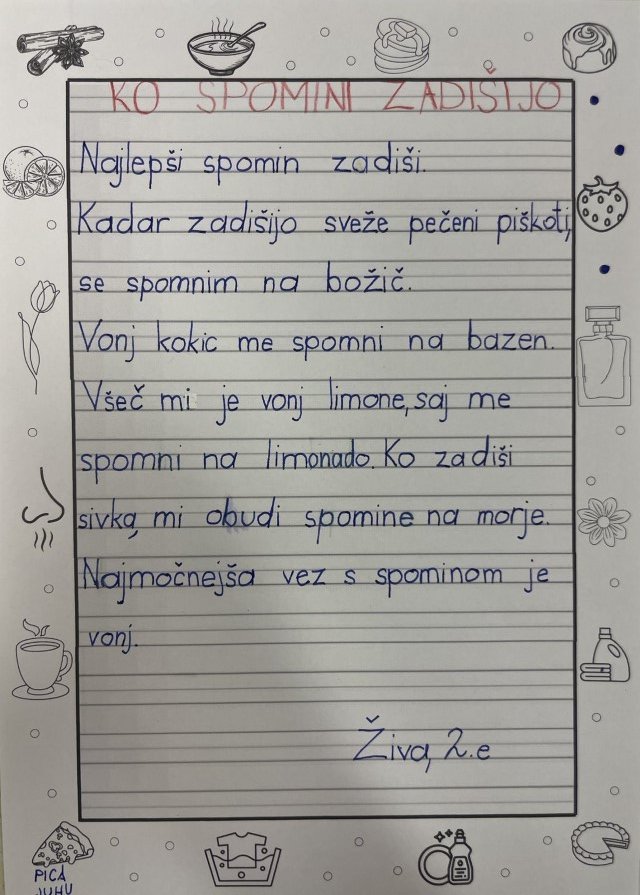 KO SPOMINI ZADIŠIJO
Najlepši spomin zadiši.
Kadar zadišijo sveže pečeni piškoti,
se spomnim na božič.
Vonj kokic me spomni na bazen.
Všeč mi je vonj limone, saj me
spomni na limonado. Ko zadiši
sivka, mi obudi spomine na morje.
Najmočnejša vez s spominom je
vonj.
Živa, 2.e
PICA
JUHU